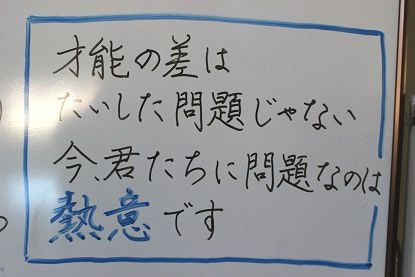 才能の差は
たいした問題じゃない
今、君たちに問題なのは
熱意です